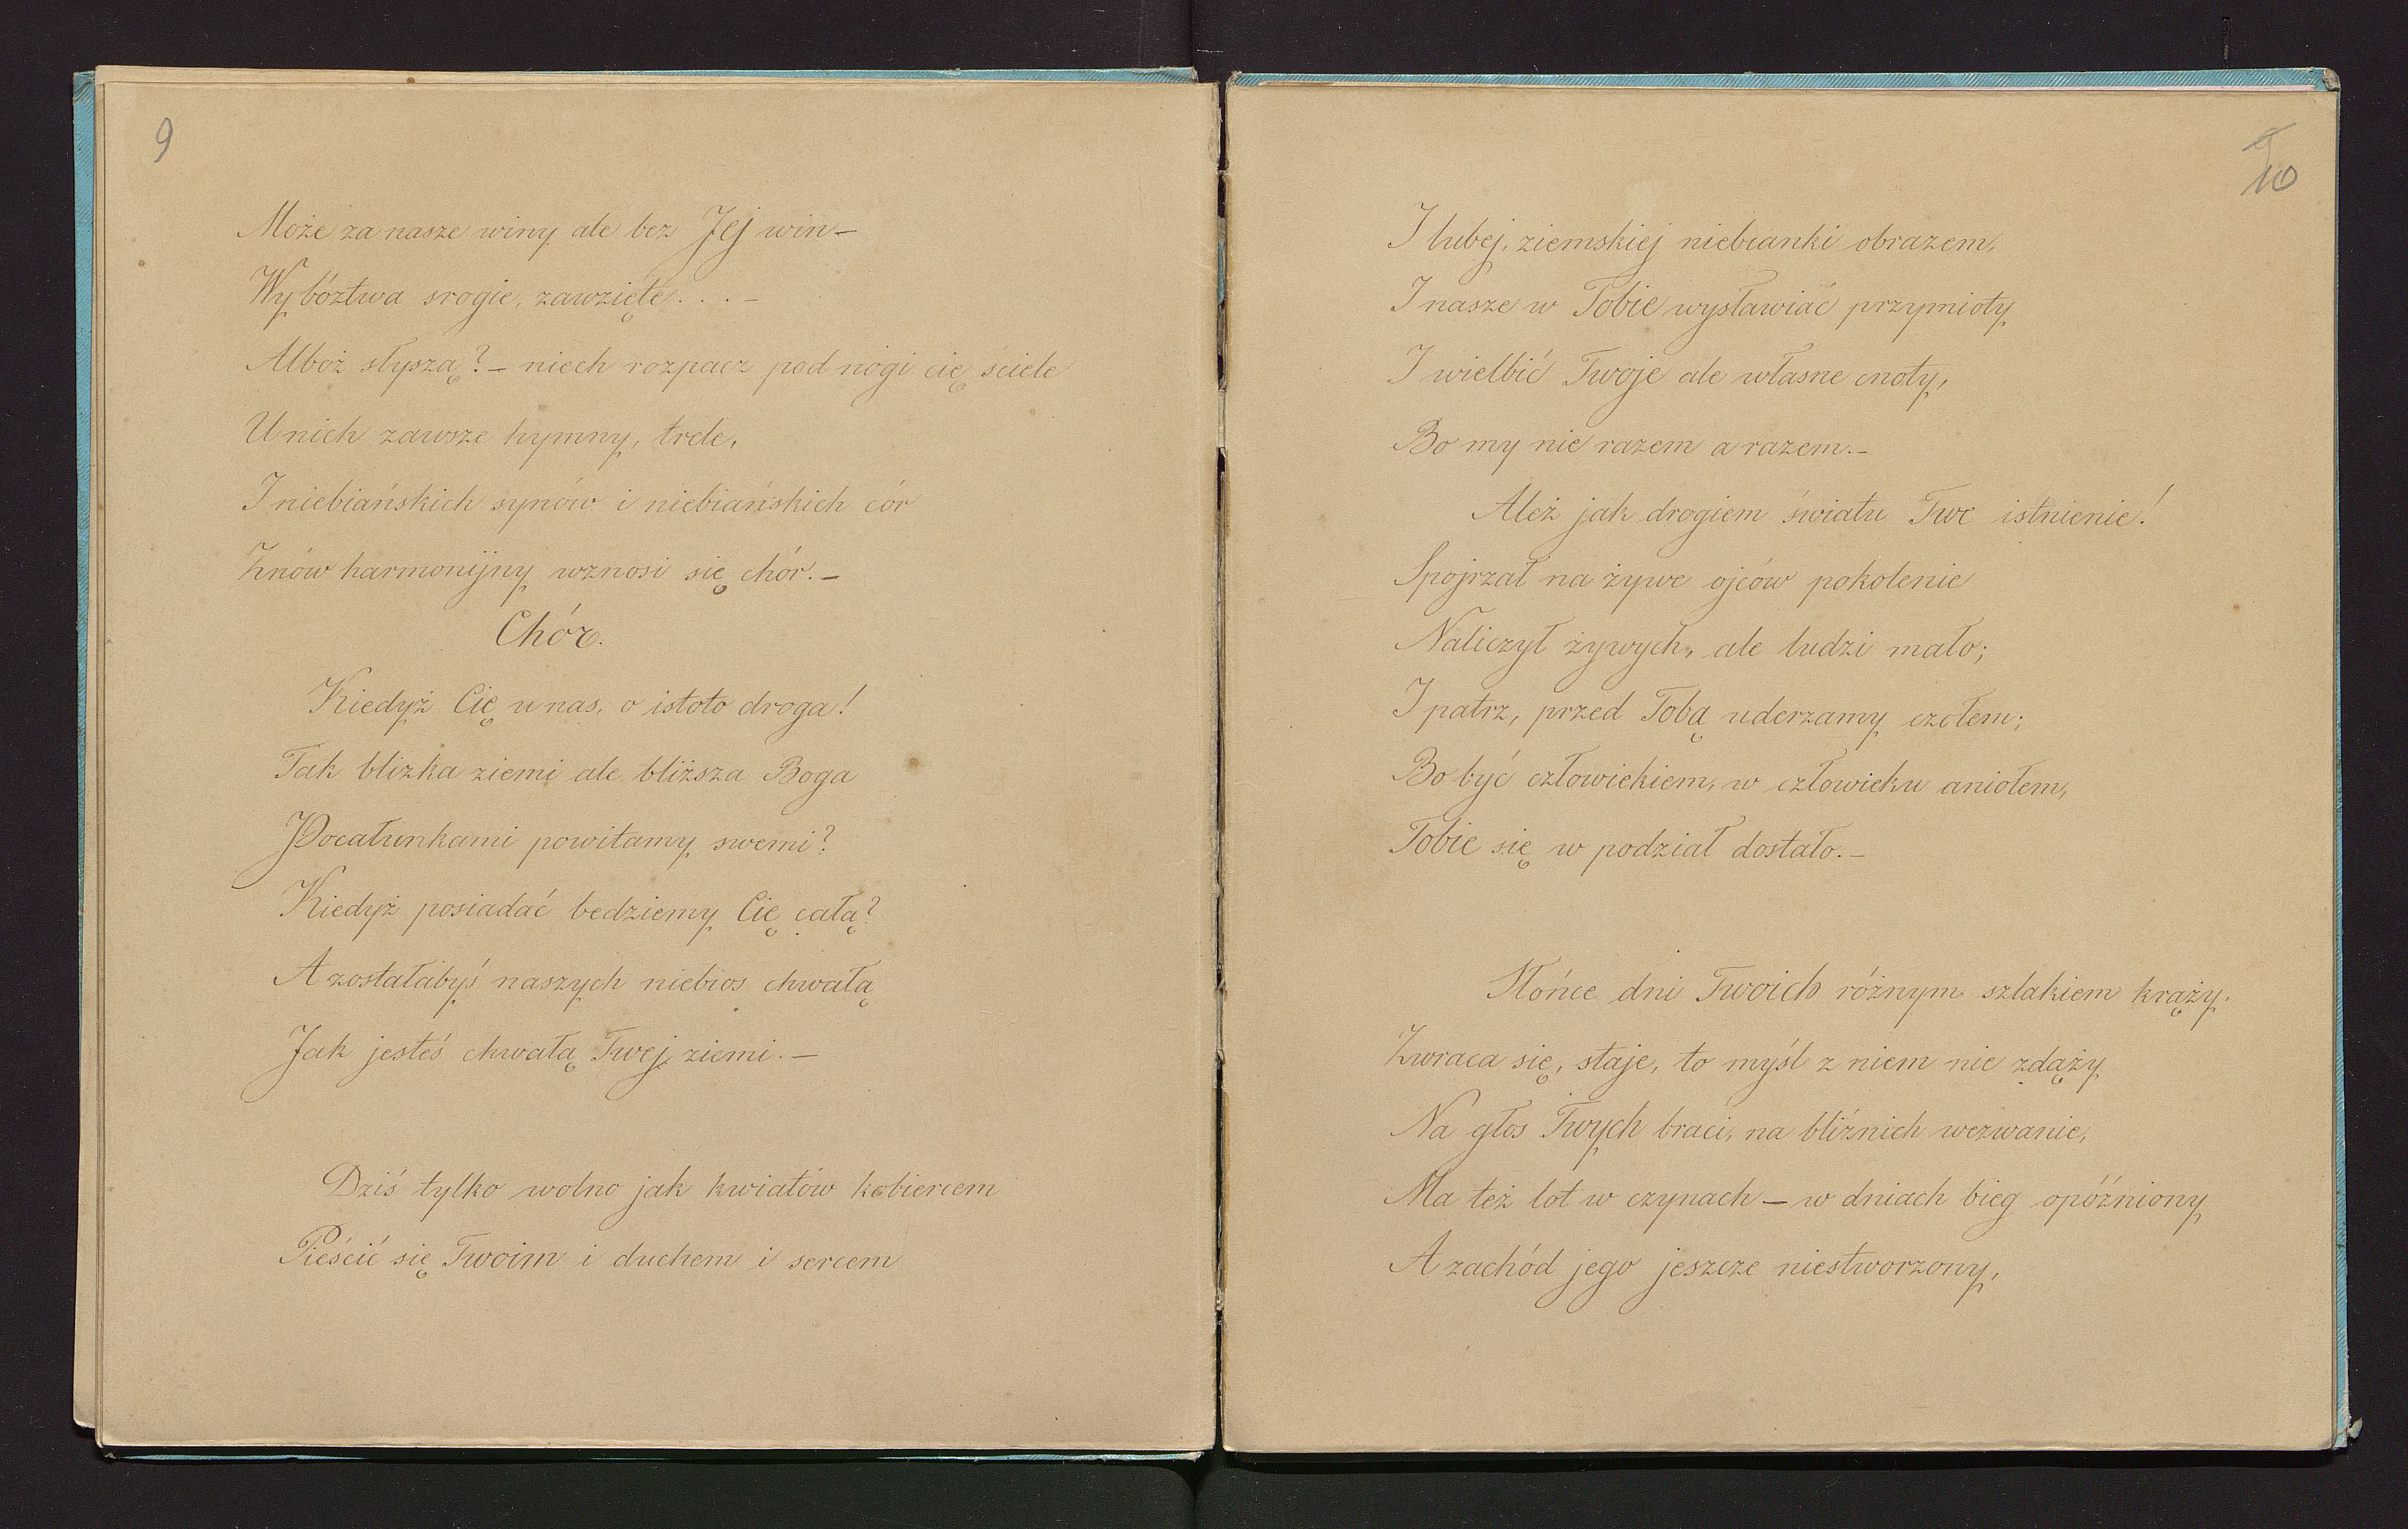 9
Może za nasze winy ale bez Jej win—
Wybóztwa srogie, zawzięte. . . —
Alboż słyszą? — niech rozpacz pod nogi cię ściele
U nich zawsze hymny, trele,
I niebiańskich synów i niebiańskich cór
Znów harmonijny wznosi się chór. —
Chór.
Kiedyż Cię u nas, o istoto droga!
Tak blizka ziemi ale bliższa Boga
Pocałunkami powitamy swemi?
Kiedyż posiadać bedziemy Cię całą?
A zostałabyś naszych niebios chwałą
Jak jesteś chwałą Twej ziemi. —
Dziś tylko wolno jak kwiatów kobiercem
Pieścić się Twoim i duchem i sercem
10
I lubej, ziemskiej niebianki obrazem,
I nasze w Tobie wysławiać przymioty
I wielbić Twoje ale własne cnoty,
Bo my nie razem a razem. —
Ależ jak drogiem światu Twe istnienie!
Spojrzał na żywe ojców pokolenie
Naliczył żywych, ale ludzi mało;
I patrz, przed Tobą uderzamy czołem;
Bo być człowiekiem, w człowieku aniołem,
Tobie się w podział dostało. —
Słońce dni Twoich różnym szlakiem krąży,
Zwraca się, staje, to myśl z niem nie zdąży
Na głos Twych braci, na bliźnich wezwanie,
Ma też lot w czynach — w dniach bieg opóźniony
A zachód jego jeszcze niestworzony,